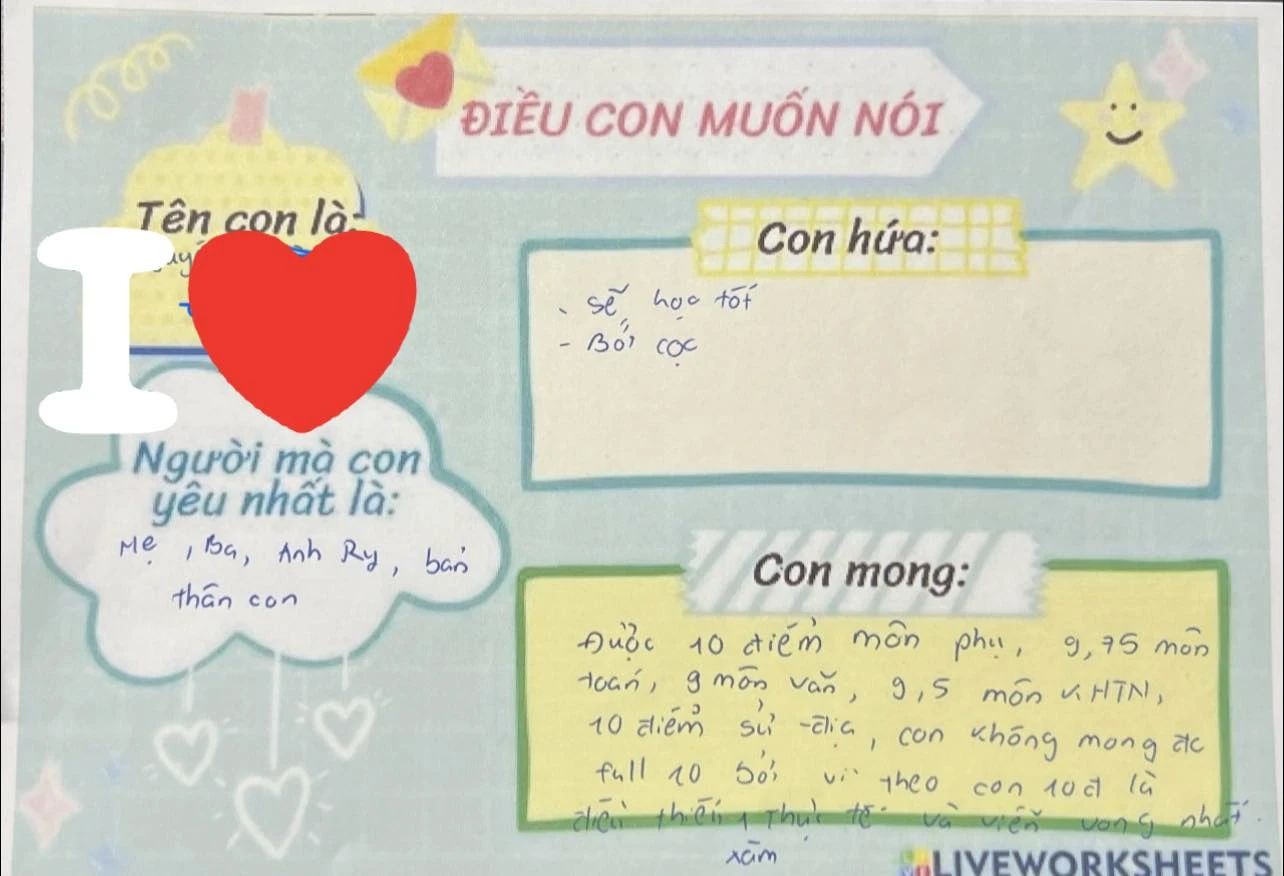 ĐIỀU CON MUỐN NÓI
Tên con là:
I
Người mà con
yêu nhất là:
Mẹ, Ba, Anh Ry, bản
thân con
Con hứa:
- sẽ học tốt
- Bớt cọc
Con mong:
Được 10 điểm môn phụ, 9,75 môn
toán, 9 môn văn, 9,5 môn KHTN,
10 điểm sử-địa, con không mong đc
full 10 bởi vì theo con 10đ là
điều thiếu thực tế và viễn vong nhất
xàm
LIVEWORKSHEETS